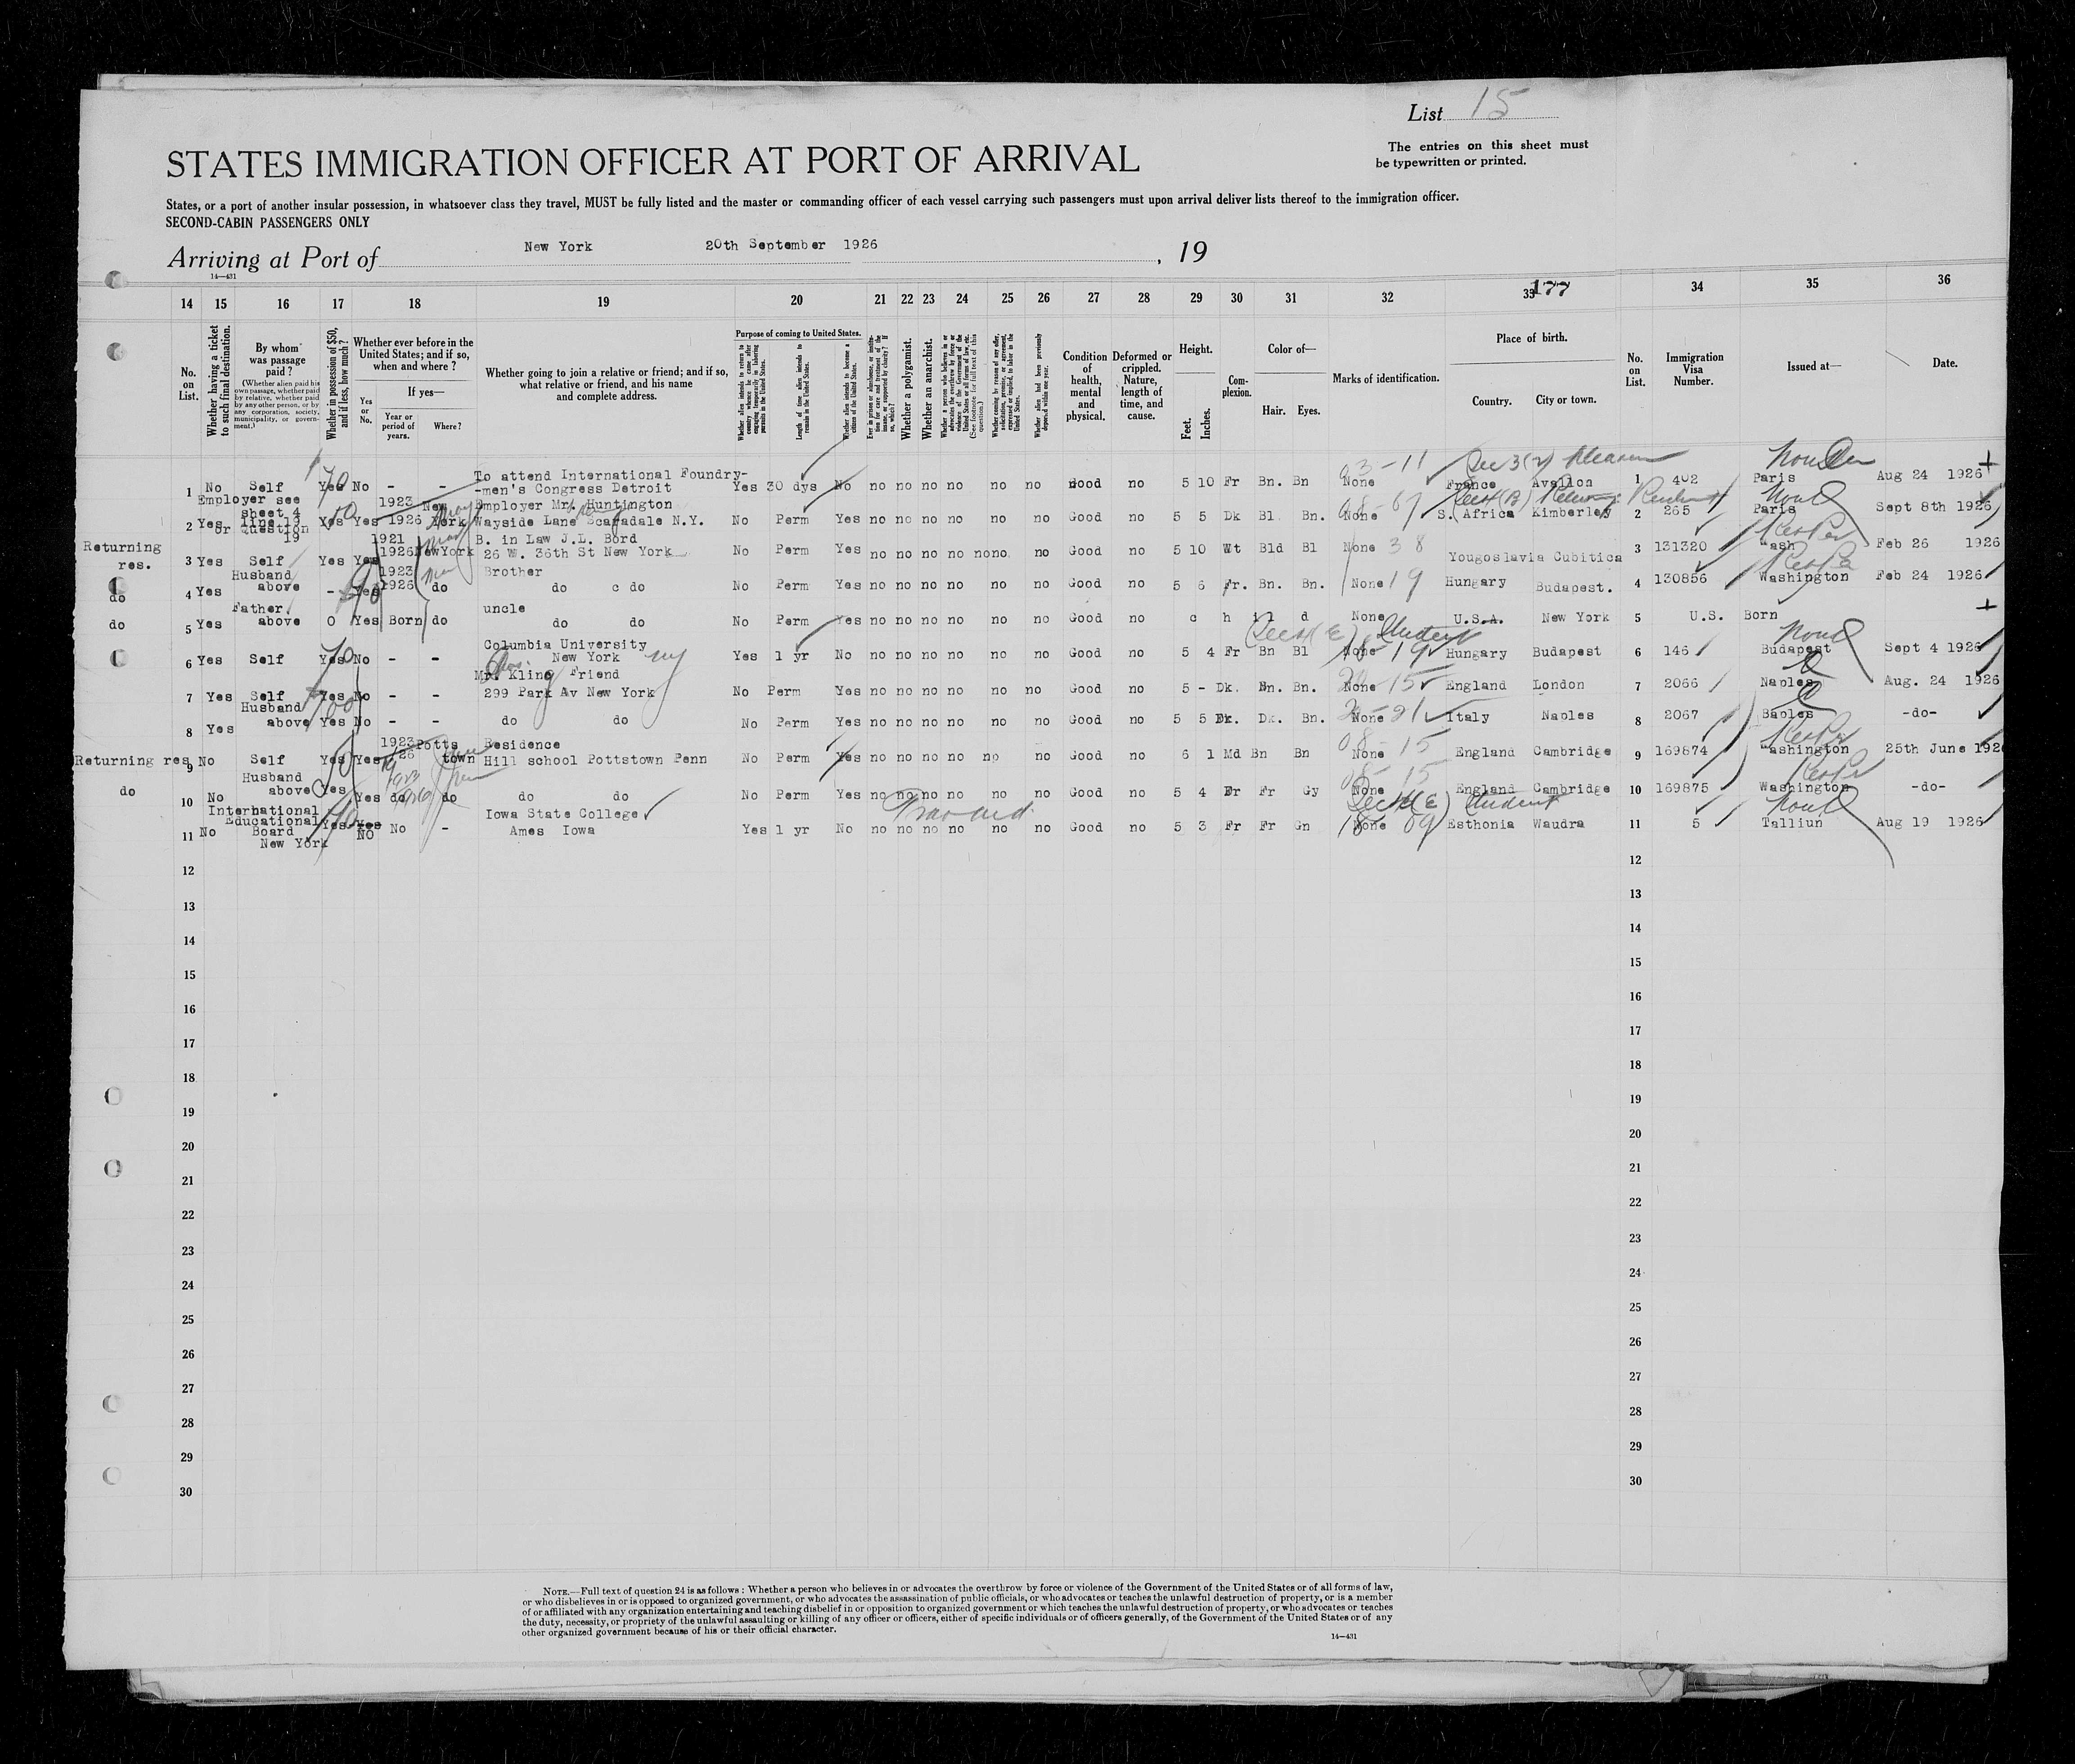 List 15
The entries on this sheet must
be typewritten or printed.
STATES IMMIGRATION OFFICER AT PORT OF ARRIVAL
States, or a port of another insular possession, in whatsoever class they travel, MUST be fully listed and the master or commanding officer of each vessel carrying such passengers must upon arrival deliver lists thereof to the immigration officer.
SECOND-CABIN PASSENGERS ONLY
Arriving at Port of New York 20th September 1926, 19
14—431
177
14 15 16 17 18 19 20 21 22 23 24 25 26 27 28 29 30 31 32 33 34 35 36
No. on List.
Whether having a ticket to such final destination.
By whom was passage paid?
(Whether alien paid his own passage, whether paid by relative, whether paid by any other person, or by any corporation, society, municipality, or government.)
Whether in possession of $50, and if less, how much?
Whether ever before in the United States; and if so, when and where?
Yes or No.
If yes—
Year or period of years.
Where?
Whether going to join a relative or friend; and if so, what relative or friend, and his name and complete address.
Purpose of coming to United States.
Whether alien intends to return to country whence he came after engaging temporarily in laboring pursuits in the United States.
Length of time alien intends to remain in the United States.
Whether alien intends to become a citizen of the United States.
Whether a polygamist.
Whether an anarchist.
Condition of health, mental and physical.
Deformed or crippled. Nature, length of time, and cause.
Height.
Feet. Inches.
Complexion.
Color of—
Hair. Eyes.
Marks of identification.
Place of birth.
Country. City or town.
No. on List.
Immigration Visa Number.
Issued at—
Date.
1 No Self Yes No - - To attend International Foundry-
-men's Congress Detroit Yes 30 dys No no no no no no no Good no 5 10 Fr Bn. Bn None France Avallon 1 402 Paris Aug 24 1926
Employer see
sheet 4
line 13
or question
19
2 Yes Yes Yes 1923 1926 New York Employer Mr. Huntington
Wayside Lane Scarsdale N.Y. No Perm Yes no no no no no no Good no 5 5 Dk Bl Bn. None S. Africa Kimberley 2 265 Paris Sept 8th 1926
Returning res. 3 Yes Self Yes Yes 1921 1926 NewYork B. in Law J.L. Bord
26 W. 36th St New York No Perm Yes no no no no no no no Good no 5 10 Wt Bld Bl None Yougoslavia Cubitica 3 131320 Wash Feb 26 1926
do 4 Yes Husband above - Yes 1923 1926 do Brother
do c do No Perm Yes no no no no no no Good no 5 6 Fr. Bn. Bn. None 19 Hungary Budapest. 4 130856 Washington Feb 24 1926
do 5 Yes Father above 0 Yes Born do uncle
do do No Perm Yes no no no no no no Good no c h i l d None U.S.A. New York 5 U.S. Born
6 Yes Self Yes No - - Columbia University
New York Yes 1 yr No no no no no no no Good no 5 4 Fr Bn Bl None Hungary Budapest 6 146 Budapest Sept 4 1926
7 Yes Self Yes No - - Mr. Kling Friend
299 Park Av New York No Perm Yes no no no no no no Good no 5 - Dk. Bn. Bn. None England London 7 2066 Naples Aug. 24 1926
8 Yes Husband above Yes No - - do do No Perm Yes no no no no no no Good no 5 5 Dk. Dk. Bn. None Italy Naples 8 2067 Naples -do-
Returning res 9 No Self Yes Yes 1923 26 Potts town Residence
Hill school Pottstown Penn No Perm Yes no no no no no no Good no 6 1 Md Bn Bn None England Cambridge 9 169874 Washington 25th June 1926
do 10 No Husband above Yes Yes do do do do No Perm Yes no no no no no no Good no 5 4 Fr Fr Gy None England Cambridge 10 169875 Washington -do-
11 No International
Educational
Board
New York Yes Yes No No - Iowa State College
Ames Iowa Yes 1 yr No no no no no no no Good no 5 3 Fr Fr Gn None Esthonia Waudra 11 5 Talliun Aug 19 1926
12 12
13 13
14 14
15 15
16 16
17 17
18 18
19 19
20 20
21 21
22 22
23 23
24 24
25 25
26 26
27 27
28 28
29 29
30 30
NOTE.—Full text of question 24 is as follows: Whether a person who believes in or advocates the overthrow by force or violence of the Government of the United States or of all forms of law,
or who disbelieves in or is opposed to organized government, or who advocates the assassination of public officials, or who advocates or teaches the unlawful destruction of property, or is a member
of or affiliated with any organization entertaining and teaching disbelief in or opposition to organized government or which teaches the unlawful destruction of property, or who advocates or teaches
the duty, necessity, or propriety of the unlawful assaulting or killing of any officer or officers, either of specific individuals or of officers generally, of the Government of the United States or of any
other organized government because of his or their official character.
14—431